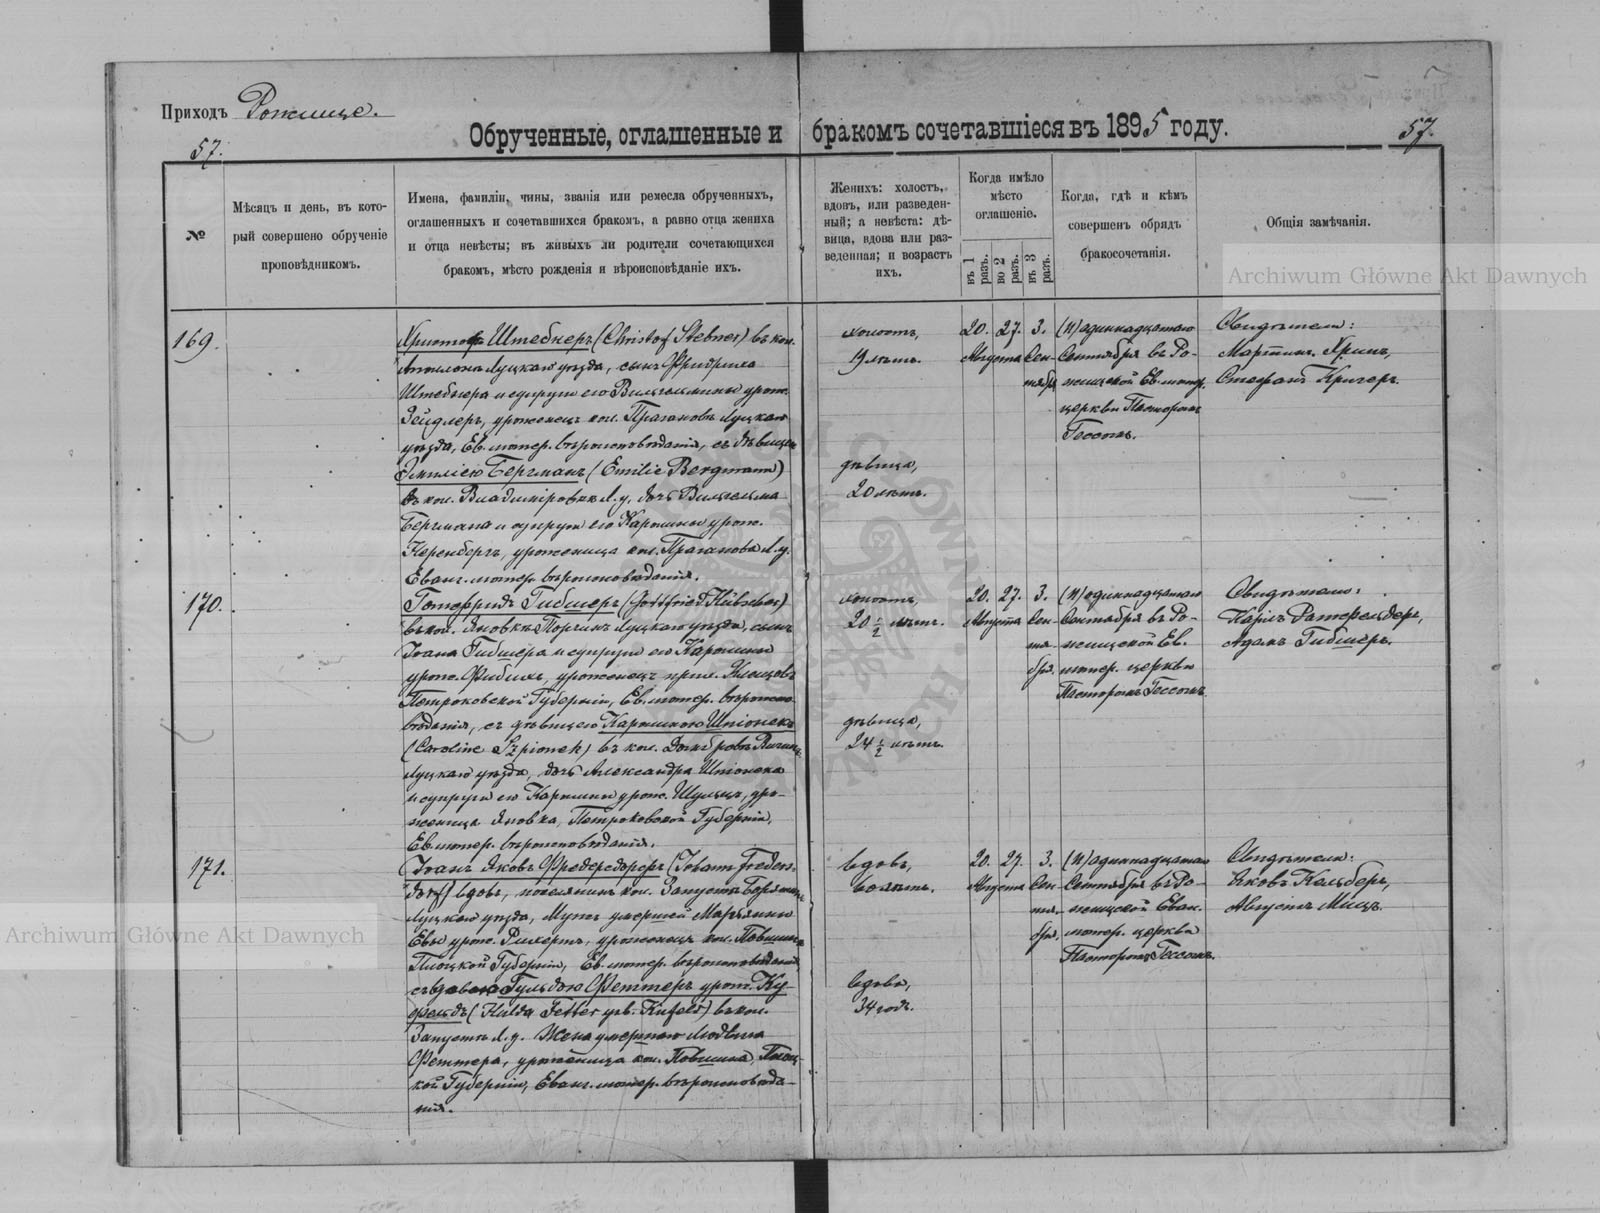 Приходъ Рожище.
Обрученные, оглашенные и бракомъ сочетавшіеся въ 1895 году.
57.
57.
№
Мѣсяцъ и день, въ кото-
рый совершено обрученіе
проповѣдникомъ.
Имена, фамиліи, чины, званія или ремесла обрученныхъ,
оглашенныхъ и сочетавшихся бракомъ, а равно отца жениха
и отца невѣсты; въ живыхъ ли родители сочетающихся
бракомъ, мѣсто рожденія и вѣроисповѣданіе ихъ.
Женихъ: холостъ,
вдовъ, или разведен-
ный; а невѣста: дѣ-
вица, вдова или раз-
веденная; и возрастъ
ихъ.
Когда имѣло
мѣсто
оглашеніе.
въ 1
разъ.
во 2
разъ.
въ 3
разъ.
Когда, гдѣ и кѣмъ
совершенъ обрядъ
бракосочетанія.
Общія замѣчанія.
169.
Христофъ Штебнеръ (Christof Stebner) въ кол.
Аполонія Луцкаго уѣзда, сынъ Фридриха
Штебнера и супруги его Вильгельмины урож.
Зейдлеръ, уроженецъ кол. Прагановъ Луцкаго
уѣзда, Ев. лютер. вѣроисповѣданія, съ дѣвицею
Эмиліею Бергманъ (Emilie Bergmann)
въ кол. Владиміровкѣ Л. у., дочь Вильгельма
Бергмана и супруги его Каролины урож.
Керенбергъ, уроженица кол. Праганова Л. у.
Еванг. лютер. вѣроисповѣданія.
холостъ,
19 лѣтъ.
дѣвица,
20 лѣтъ.
20. 27. 3.
Августа Сен-
тября
(11) одиннадцатаго
Сентября въ Ро-
жищской Ев. лютер.
церкви Пасторомъ
Гессомъ.
Свидѣтели:
Мартинъ Хринъ,
Стефанъ Кригеръ.
170.
Готфридъ Гибшеръ (Gottfried Hübscher)
въ кол. Яновкѣ Луцкаго уѣзда, сынъ
Іоана Гибшера и супруги его Каролины
урож. Фибихъ, уроженецъ
Петроковской Губерніи, Ев. лютер. вѣроиспо-
вѣданія, съ дѣвицею Каролиною Шпіонекъ
(Caroline Szpionek) въ кол.
Луцкаго уѣзда, дочь Александра Шпіонека
и супруги его Каролины урож. Шульцъ, уро-
женица Яновка, Петроковской Губерніи,
Ев. лютер. вѣроисповѣданія.
холостъ,
20 ½ лѣтъ.
дѣвица,
24 ½ лѣтъ.
20. 27. 3.
Августа Сен-
тя-
бря.
(11) одиннадцатаго
Сентября въ Ро-
жищской Ев.
лютер. церкви
Пасторомъ Гессомъ.
Свидѣтели:
Карлъ Ратфельдеръ,
Адамъ Гибшеръ.
171.
Іоанъ Яковъ Фредередорфъ (Johann Freders-
dorf) вдовъ, поселянинъ кол. Запустъ
Луцкаго уѣзда, Мужъ умершей Марьянны
Евы урож. Рихертъ, уроженецъ кол.
Плоцкой Губерніи, Ев. лютер. вѣроисповѣданія,
съ вдовою Гульдою Феттеръ урож. Ку-
фельдъ (Hulda Fetter geb. Kufeld) въ кол.
Запустъ Л. у. Жена умершаго Людвига
Феттера, уроженица кол. Плоц-
кой Губерніи, Еванг. лютер. вѣроисповѣда-
нія.
вдовъ,
60 лѣтъ.
вдова,
34 годъ.
20. 27. 3.
Августа Сен-
тя-
бря.
(11) одиннадцатаго
Сентября въ Ро-
жищской Еван.
лютер. церкви
Пасторомъ Гессомъ.
Свидѣтели:
Яковъ Кельберъ,
Августъ Мицъ.
Archiwum Główne Akt Dawnych
Archiwum Główne Akt Dawnych